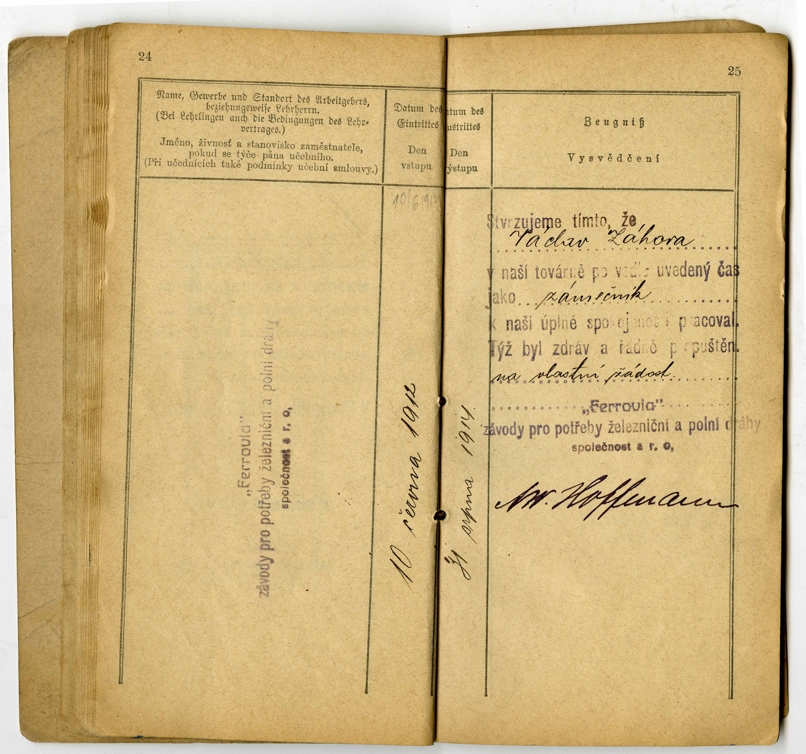 24
Name, Gewerbe und Standort des Arbeitgebers,
beziehungsweise Lehrherrn.
(Bei Lehrlingen auch die Bedingungen des Lehr-
vertrages.)
Jméno, živnost a stanovisko zaměstnatele,
pokud se týče pána učebního.
(Při učednících také podmínky učební smlouvy.)
Datum des
Eintrittes
Den
vstupu
10/6 1912
„Ferrovia"
závody pro potřeby železniční a polní dráhy
společnost s r. o,
10 června 1912
25
tum des
strittes
Den
ýstupu
Zeugniß
Vysvědčení
31 srpna 1914
Stvrzujeme tímto, že
Václav Záhora
v naší továrně po vedle uvedený čas
jako zámečník
k naší úplné spokojenosti pracoval.
Týž byl zdráv a řádně propuštěn.
na vlastní žádost
„Ferrovia"
závody pro potřeby železniční a polní dráhy
společnost s r. o,
Hoffmann